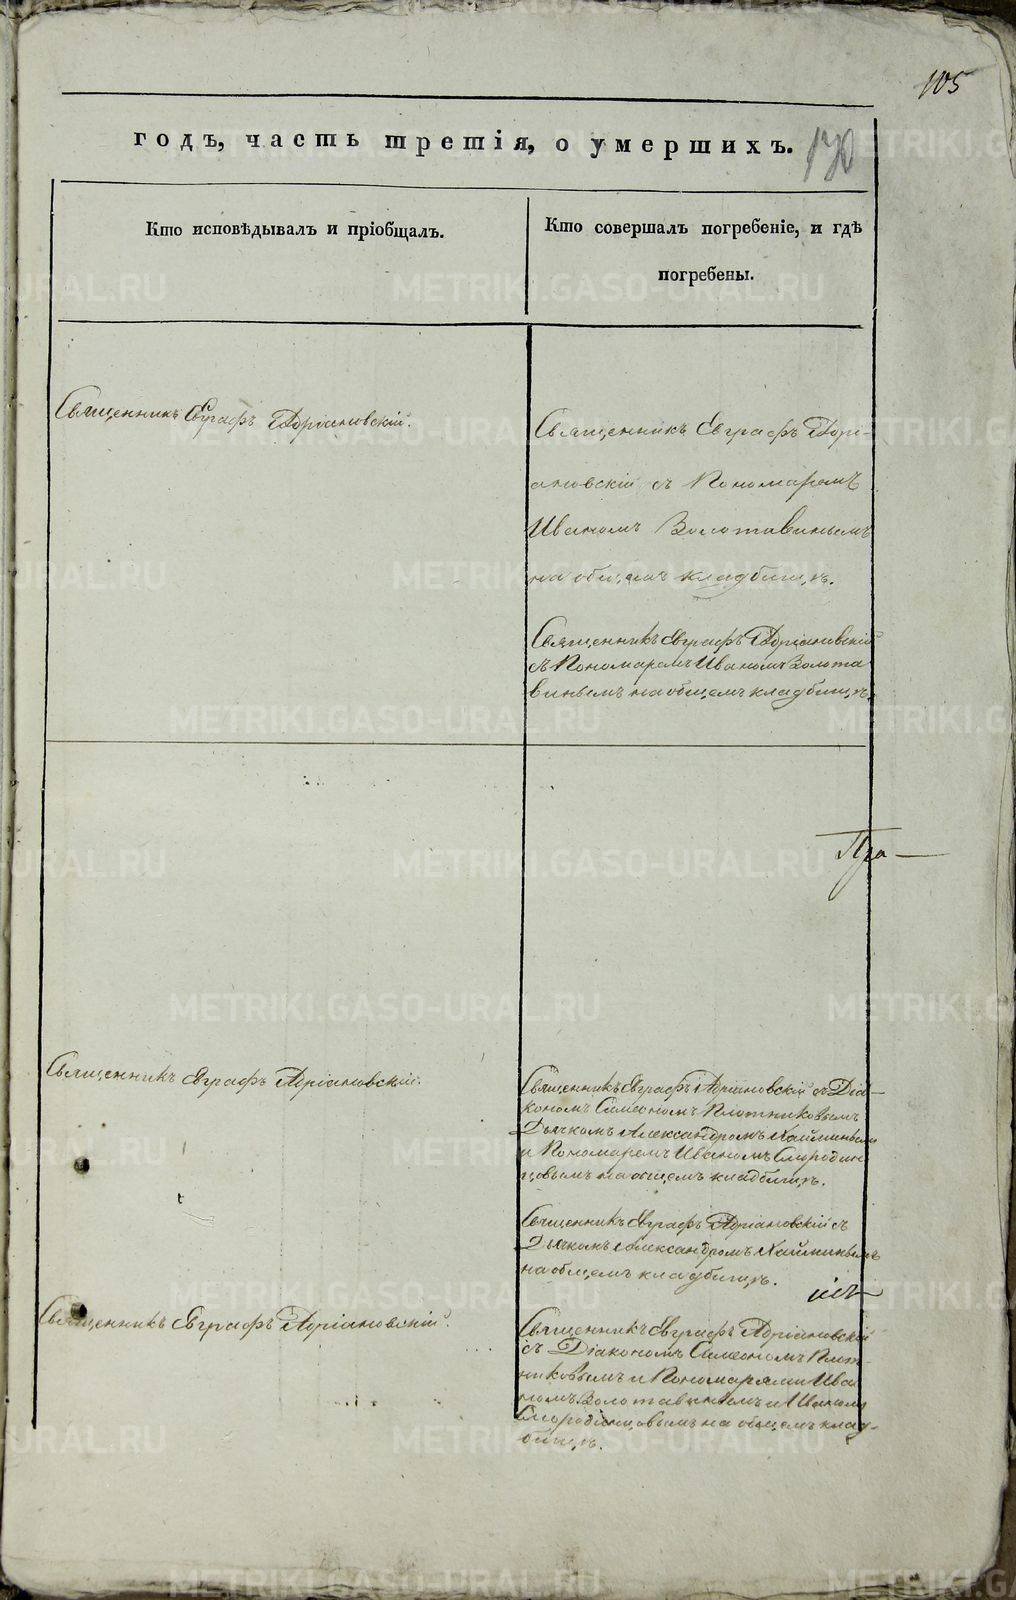 105
годъ, часть третія, о умершихъ.
130
Кто исповѣдывалъ и пріобщалъ.
Кто совершалъ погребеніе, и гдѣ
погребены.
Священникъ Евграфъ Адріановскій.
Священникъ Евграфъ Адрі-
ановскій съ Пономаремъ
Иваномъ Золотавинымъ
на общемъ кладбищѣ.
Священникъ Евграфъ Адріановскій
съ Пономаремъ Иваномъ Золота
винымъ на общемъ кладбищѣ.
Священникъ Евграфъ Адріановскій.
Священникъ Евграфъ Адріановскій съ Діа-
кономъ Симеономъ Плотниковымъ
Дьячкомъ Александромъ Хайминымъ
и Пономаремъ Иваномъ Смородин
цовымъ на общемъ кладбищѣ.
Священникъ Евграфъ Адріановскій съ
Дьячкомъ Александромъ Хайминымъ
на общемъ кладбищѣ.
Священникъ Евграфъ Адріановскій.
Священникъ Евграфъ Адріановскій
съ Діакономъ Симеономъ Плот-
никовымъ и Пономарями Ива
номъ Золотавинымъ и Иваномъ
Смородинцовымъ на общемъ клад-
бищѣ.
METRIKI.GASO-URAL.RU